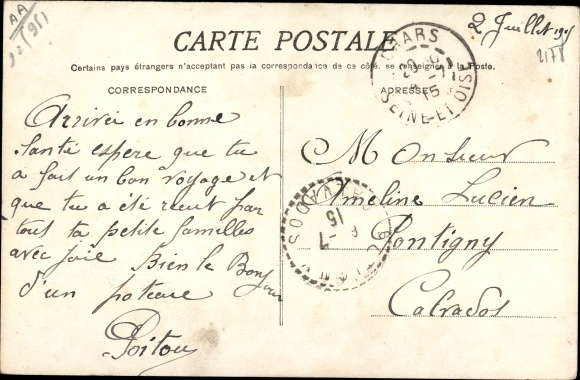 AA
2 Juillet 1915
2178
CARTE POSTALE
Certains pays étrangers n'acceptant pas la correspondance de ce côté, se renseigner à la Poste.
CORRESPONDANCE
ADRESSE
CHARS
SEINE-ET-OISE
15
Arrivér en bonne
santé espère que tu
a fait un bon voyage et
que tu a été recut par
tout ta petite familles
avec joie Bien le Bonjour
d'un poteau
Poitou
Monsieur
Ameline Lucien
Pontigny
Calvados
15